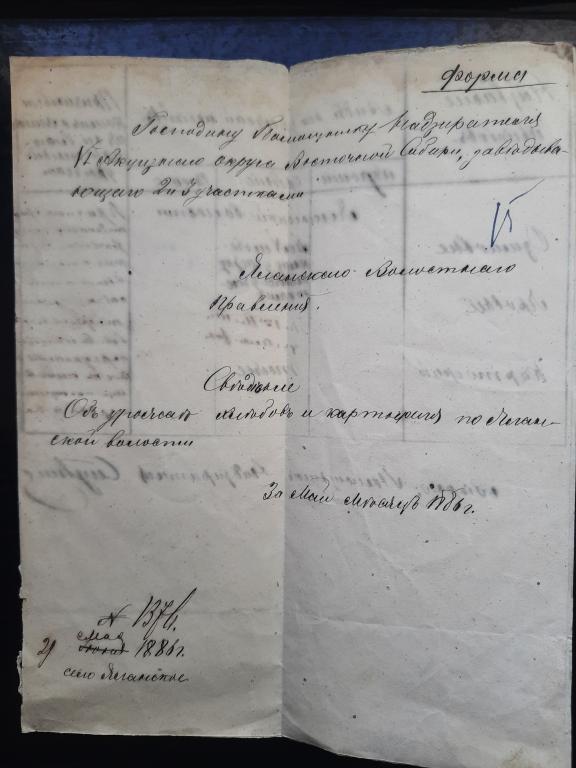 Форма
Господину Помощнику Надзирателя
VI Акцизнаго округа Восточной Сибири, заведыва-
ющаго 2 и 3 участками
VI
Яланскаго Волостнаго
Правления.
Сведение
Об урожае хлебовъ и картофеля по Яланс-
ской волости
За Май месяцъ 1886 г.
N 1376.
21 мая 1886 г.
село Яланское